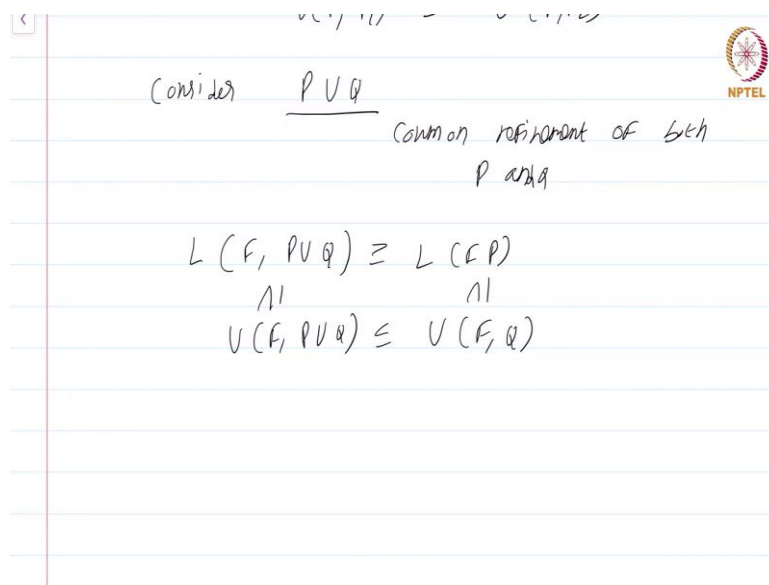 NPTEL
Consider P U Q
Common refinement of both
P and Q
L (F, P U Q) ≥ L (F P)
∧| ∧|
U (F, P U Q) ≤ U (F, Q)